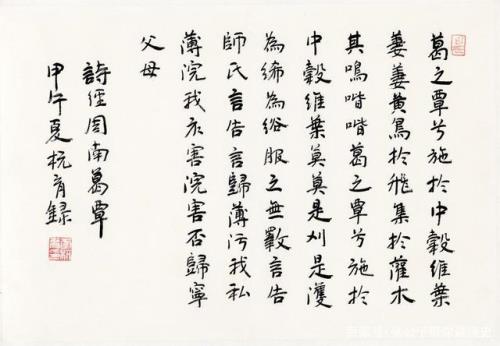 葛之覃兮施於中穀維葉
萋萋黃鳥於飛集於灌木
其鳴喈喈葛之覃兮施於
中穀維葉莫莫是刈是濩
為絺為綌服之無斁言告
師氏言告言歸薄污我私
薄浣我衣害浣害否歸寧
父母
詩經周南葛覃
甲午夏杭育録